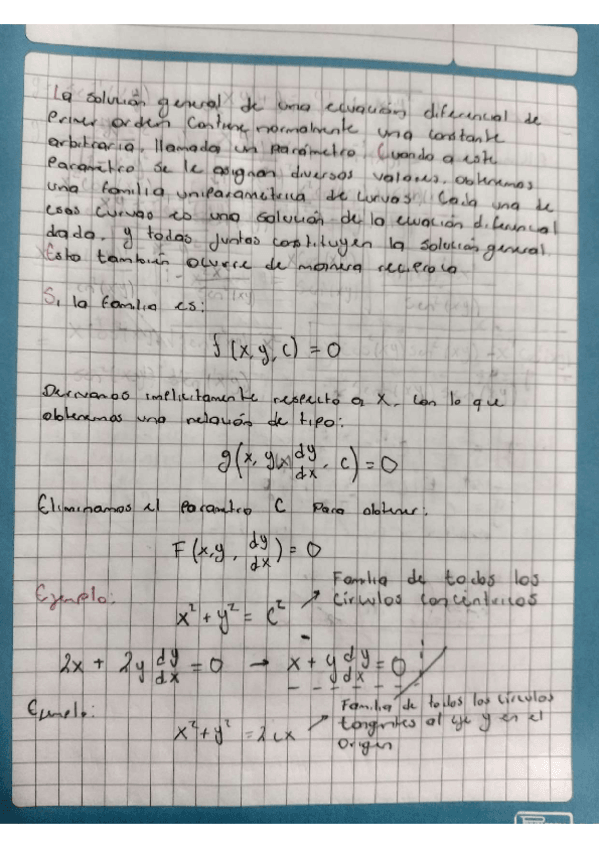 La solución general de una ecuación diferencial de
Primer orden contiene normalmente una constante
arbitraria, llamada un parámetro. Cuando a este
Parámetro se le asignan diversos valores, obtenemos
una familia uniparamétrica de curvas. Cada una de
esas curvas es una solución de la ecuación diferencial
dada, y todas juntas constituyen la solución general.
Esto también ocurre de manera reciproca
Si la familia es:
f(x, y, c) = 0
Derivamos implicitamente respecto a x, con lo que
obtenemos una relación de tipo:
g(x, y(x) dy/dx, c) = 0
Eliminamos el parametro C para obtener:
F(x, y, dy/dx) = 0
Ejemplo:
x² + y² = c² ↗ Familia de todos los
círculos concéntricos
2x + 2y dy/dx = 0 → x + y dy/dx = 0
Ejemplo:
x² + y² = 2cx ↗ Familia de todos los círculos
tangentes al eje y en el
origen